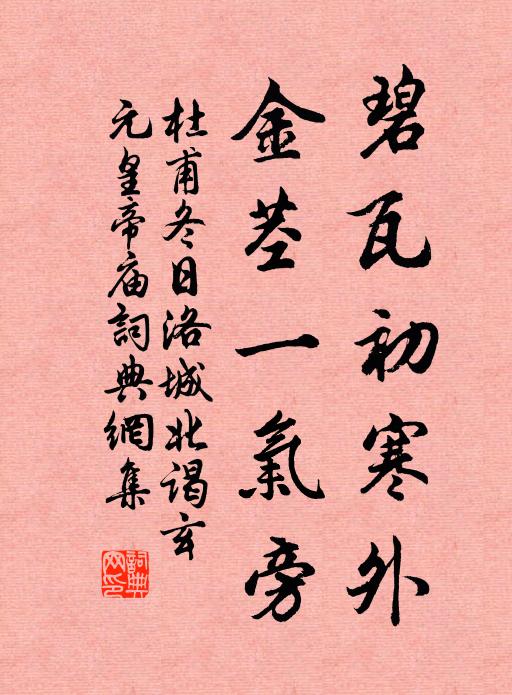 碧瓦初寒外
金茎一氣旁
杜甫冬日洛城北謁玄
元皇帝庙詞典網集
詞典
网印